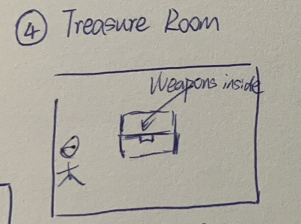 ④ Treasure Room
Weapons inside